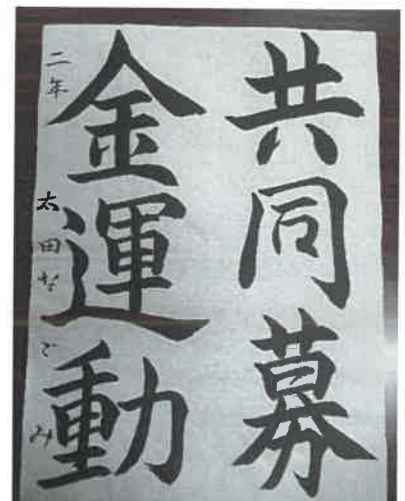 共同募
金運動
二年 太田なごみ